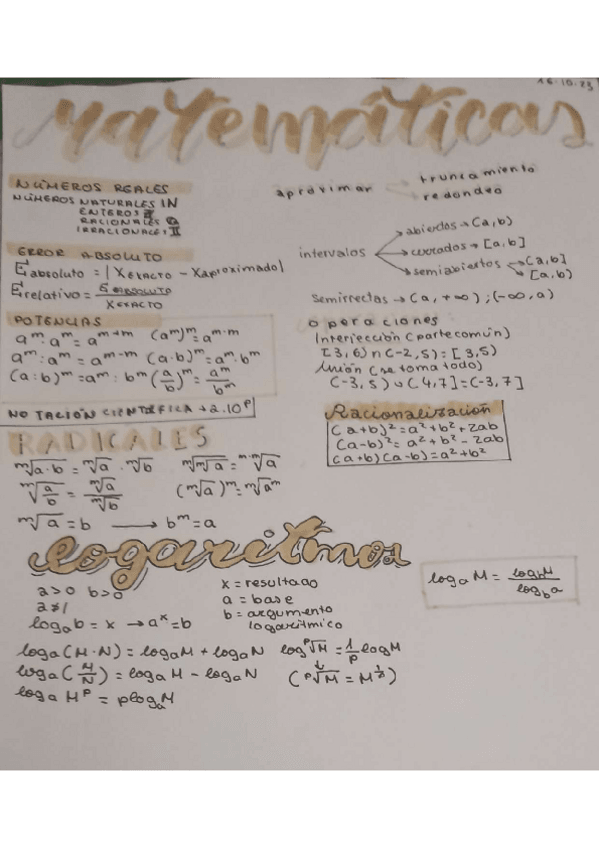 16-10-23
Matemáticas
NÚMEROS REALES
NÚMEROS NATURALES IN
ENTEROS Z
RACIONALES Q
IRRACIONALES II
aproximar
truncamiento
redondeo
ERROR ABSOLUTO
Eabsoluto = | XEXACTO - Xaproximado|
Erelativo = EABSOLUTO / XEXACTO
intervalos
abiertos → (a, b)
cerrados → [a, b]
semiabiertos → (a, b]
[a, b)
Semirrectas → (a, +∞) ; (-∞, a)
POTENCIAS
aⁿ · aᵐ = aⁿ⁺ᵐ (aᵐ)ⁿ = aᵐ·ⁿ
aᵐ : aⁿ = aᵐ⁻ⁿ (a·b)ᵐ = aᵐ · bᵐ
(a : b)ᵐ = aᵐ : bᵐ (a/b)ᵐ = aᵐ/bᵐ
NOTACIÓN CIENTÍFICA → 2.10ᵖ
operaciones
Intersección (parte común)
[3, 6) ∩ (-2, 5) = [3, 5)
Unión (se toma todo)
(-3, 5) ∪ (4, 7] = (-3, 7]
Racionalización
(a+b)² = a² + b² + 2ab
(a-b)² = a² + b² - 2ab
(a+b)(a-b) = a² + b²
RADICALES
ᵐ√a·b = ᵐ√a · ᵐ√b ᵐ√ⁿ√a = ᵐ·ⁿ√a
ᵐ√a/b = ᵐ√a / ᵐ√b (ᵐ√a)ⁿ = ᵐ√aⁿ
ᵐ√a = b → bᵐ = a
logaritmos
a>0 b>0
a≠1
logₐb = x → aˣ = b
x = resultado
a = base
b = argumento
logarítmico
logₐM = log_bM / log_ba
logₐ(M·N) = logₐM + logₐN logᵖ√M = 1/p logM
logₐ(M/N) = logₐM - logₐN (ᵖ√M = M^1/p)
logₐMᵖ = plogₐM